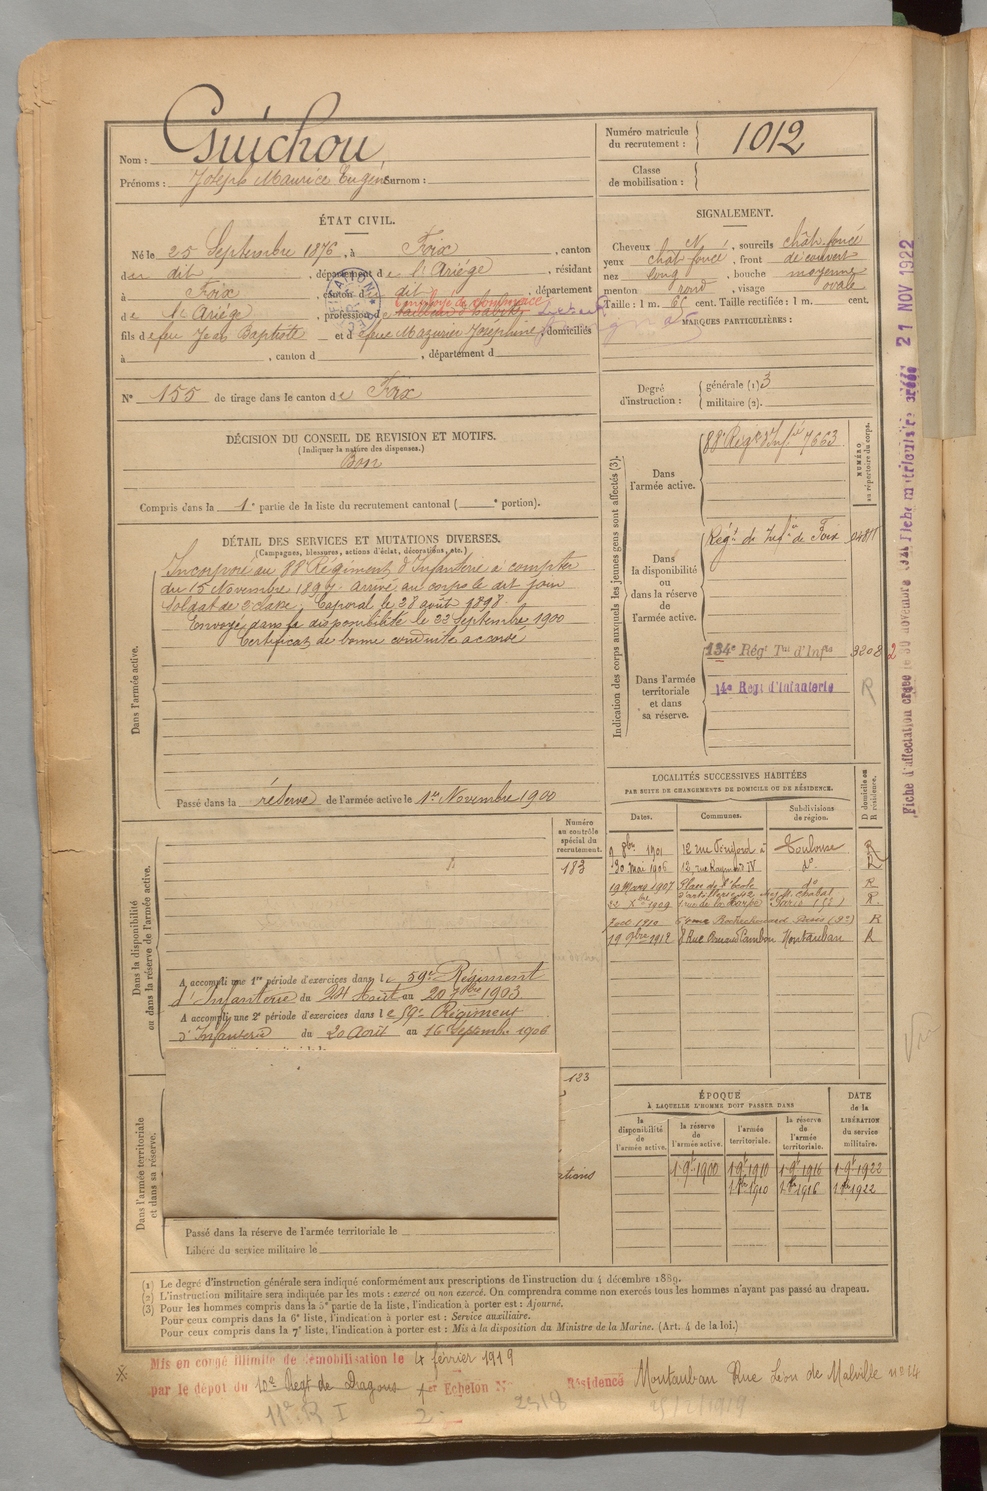 Nom : Guichou
Prénoms : Joseph Maurice Eugène Surnom :
Numéro matricule du recrutement : 1012
Classe de mobilisation :
ÉTAT CIVIL.
Né le 25 Septembre 1876, à Foix, canton
de dit, département de l'Ariège, résidant
à Foix, canton de dit, département
Employé de Commerce
de l'Ariège, profession de tailleur d'habits
fils de feu Jean Baptiste et de feue Mazurier Joséphine, domiciliés
à , canton d , département d
N° 155 de tirage dans le canton de Foix
SIGNALEMENT.
Cheveux N, sourcils chât. foncé
yeux chât foncé, front découvert
nez long, bouche moyenne
menton rond, visage ovale
Taille : 1 m. 65 cent. Taille rectifiée : 1 m. cent.
MARQUES PARTICULIÈRES :
Degré d'instruction : générale (1) 3
militaire (2).
DÉCISION DU CONSEIL DE REVISION ET MOTIFS.
(Indiquer la nature des dispenses.)
Bon
Compris dans la 1e partie de la liste du recrutement cantonal ( e portion).
DÉTAIL DES SERVICES ET MUTATIONS DIVERSES.
(Campagnes, blessures, actions d'éclat, décorations, etc.)
Dans l'armée active.
Incorporé au 88e Régiment d'Infanterie à compter
du 15 Novembre 1897. Arrivé au corps le dit jour
soldat de 2e classe, Caporal le 28 août 1898.
Envoyé dans la disponibilité le 22 Septembre 1900
Certificat de bonne conduite accordé
Passé dans la réserve de l'armée active le 1er Novembre 1900
Indication des corps auxquels les jeunes gens sont affectés (3).
NUMÉRO au répertoire du corps.
Dans l'armée active.
88e Régt d'Infie 7663
Dans la disponibilité ou dans la réserve de l'armée active.
Régt de Infie de Foix
Dans l'armée territoriale et dans sa réserve.
134e Régt Tal d'Infie 3208
14e Régt d'Infanterie
R
Fiche d'affectation
21 NOV 1922
LOCALITÉS SUCCESSIVES HABITÉES
PAR SUITE DE CHANGEMENTS DE DOMICILE OU DE RÉSIDENCE.
Dates. Communes. Subdivisions de région. D domicile ou R résidence.
1901 12 rue à Toulouse R
30 Mai 1906 12, rue Raymond IV do. R
19 Mars 1907 Place de l'École do R
22 Xbre 1909 rue de la Harpe Paris R
1910 Rochechouart Paris (9e) R
19 9bre 1912 8 Rue Cambon Montauban R
Numéro au contrôle spécial du recrutement.
183
Dans la disponibilité ou dans la réserve de l'armée active.
A accompli une 1re période d'exercices dans le 59e Régiment
d'Infanterie du 24 Août au 20 7bre 1903.
A accompli une 2e période d'exercices dans le 59e Régiment
d'Infanterie du 20 Août au 16 Septembre 1906
123
ations
Dans l'armée territoriale et dans sa réserve.
Passé dans la réserve de l'armée territoriale le
Libéré du service militaire le
ÉPOQUE
À LAQUELLE L'HOMME DOIT PASSER DANS
DATE de la LIBÉRATION du service militaire.
la disponibilité de l'armée active. la réserve de l'armée active. l'armée territoriale. la réserve de l'armée territoriale.
1 9bre 1900 1 9bre 1910 1 9bre 1916 1 9bre 1922
1 8bre 1910 1 8bre 1916 1 8bre 1922
(1) Le degré d'instruction générale sera indiqué conformément aux prescriptions de l'instruction du 4 décembre 1889.
(2) L'instruction militaire sera indiquée par les mots : exercé ou non exercé. On comprendra comme non exercés tous les hommes n'ayant pas passé au drapeau.
(3) Pour les hommes compris dans la 5e partie de la liste, l'indication à porter est : Ajourné.
Pour ceux compris dans la 6e liste, l'indication à porter est : Service auxiliaire.
Pour ceux compris dans la 7e liste, l'indication à porter est : Mis à la disposition du Ministre de la Marine. (Art. 4 de la loi.)
Mis en congé illimité de démobilisation le 4 février 1919
par le dépot du 10e Régt de Dragons Echelon N° Résidence Montauban Rue Léon de Malville no 14